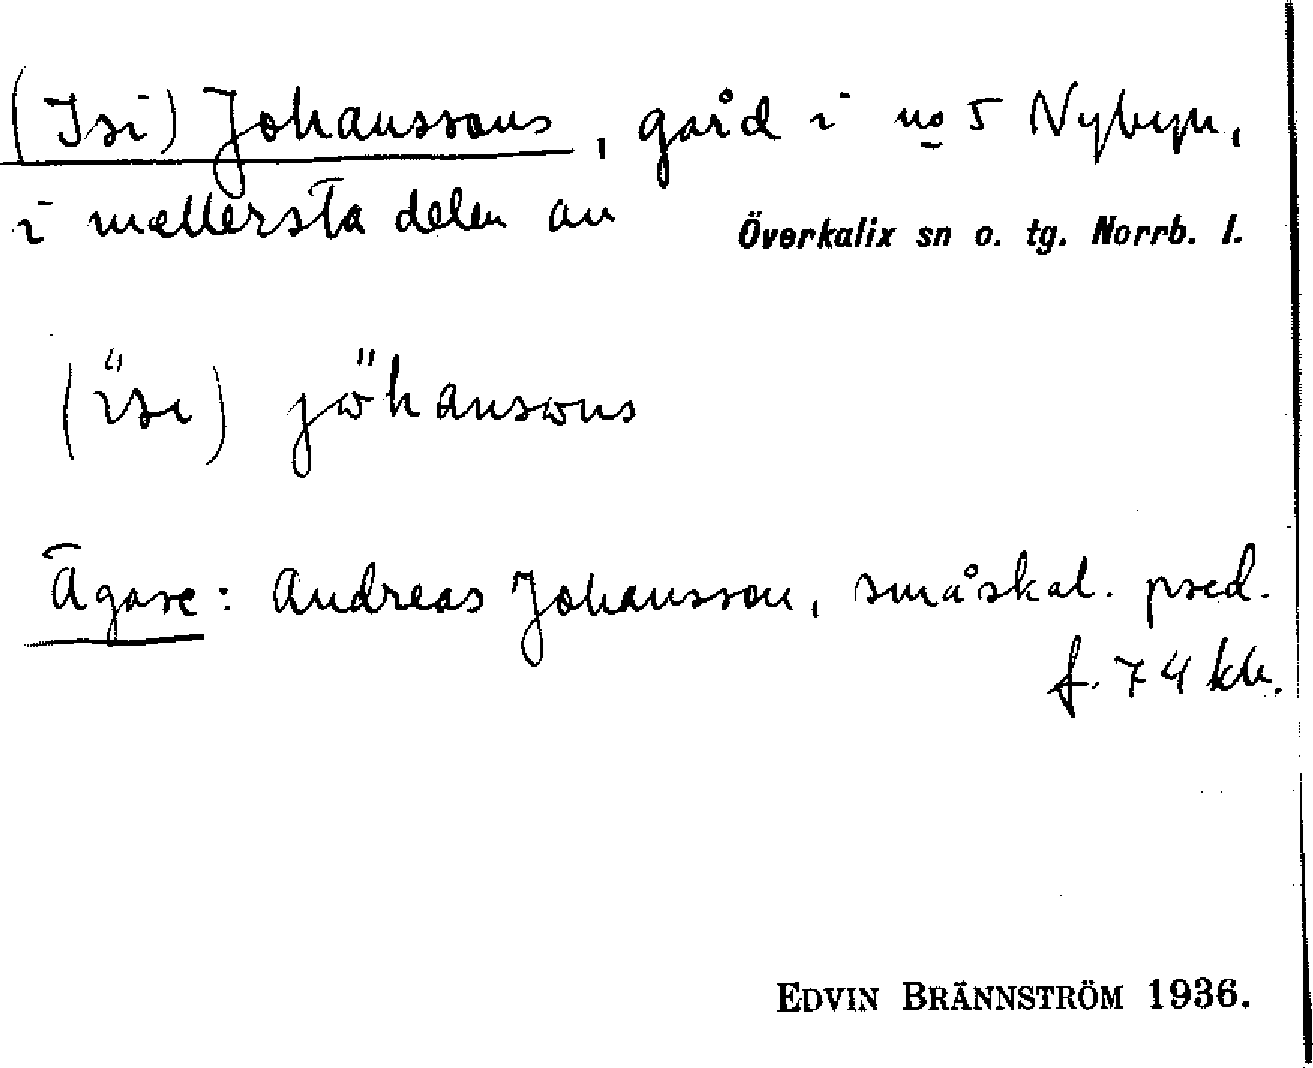 (Isi) Johanssons, gård i no 5 Nybyn,
i mellersta delen av Överkalix sn o. tg. Norrb. l.
(ïsi) jöhansons
Ägare: Andreas Johansson, småskol. pred.
f. 74
EDVIN BRÄNNSTRÖM 1936.